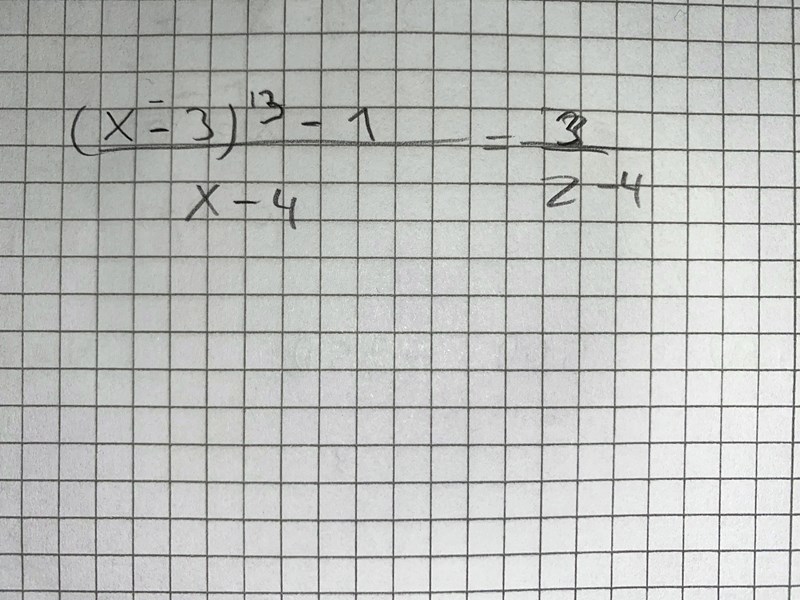 (x - 3)^13 - 1 / x - 4 = 3 / 2 - 4